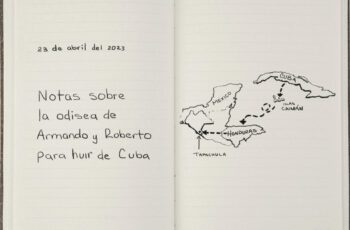 23 de abril del 2023
Notas sobre
la odisea de
Armando y Roberto
para huir de Cuba
CUBA
MÉXICO
ISLAS
CAIMÁN
HONDURAS
TAPACHULA